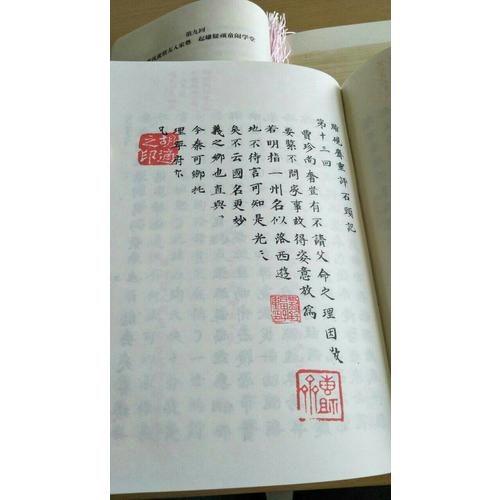 第九回
起嫌疑顽童闹学堂
脂硯齋重評石頭記
第十三回
賈珍尚奢豈有不請父命之理因敬
要緊不問家事故得姿意放為
若明指一州名似落西遊
地不待言可知是光天
矣不云國名更妙
義之鄉也直與
今秦可卿托
理寧府亦
凡
胡適之印